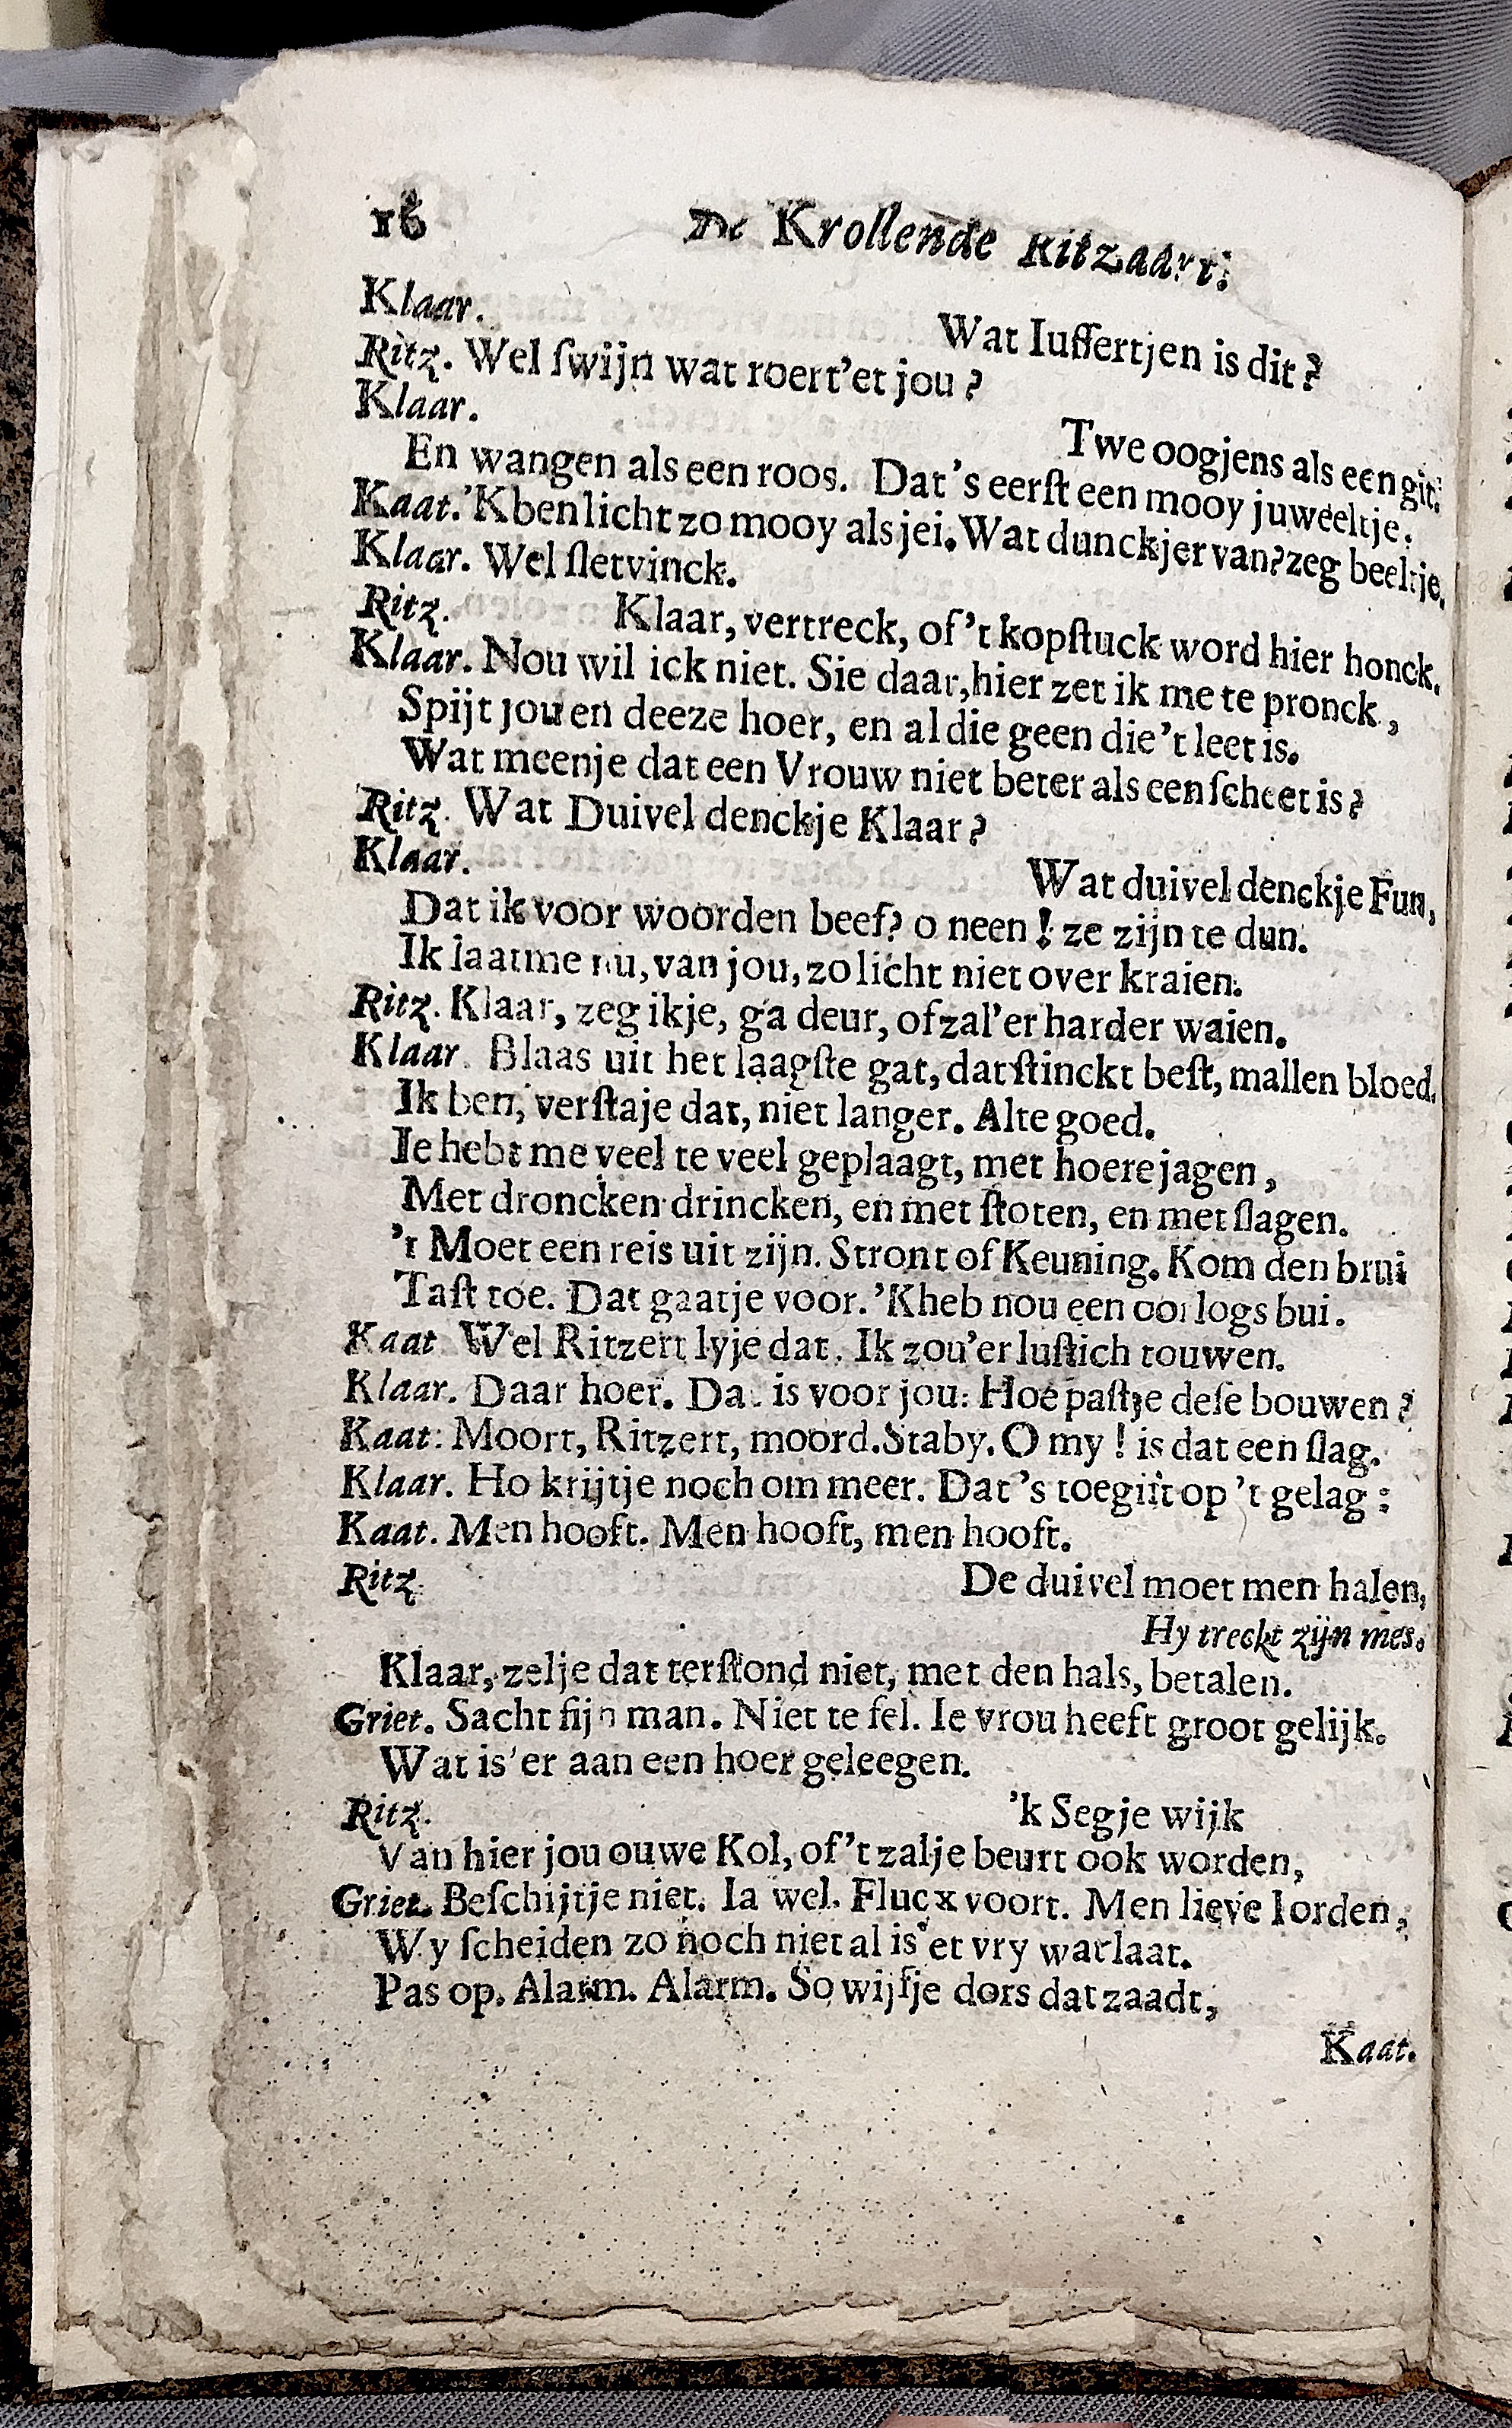 16 De Krollende Ritzaart:
Klaar. Wat Iuffertjen is dit?
Ritz. Wel ſwijn wat roert'et jou?
Klaar. Twe oogjens als een git:
En wangen als een roos. Dat 's eerſt een mooy juweeltje:
Kaat. 'K ben licht zo mooy als jei. Wat dunckjer van? zeg beeltje.
Klaar. Wel ſletvinck.
Ritz. Klaar, vertreck, of 't kopſtuck word hier honck.
Klaar. Nou wil ick niet. Sie daar, hier zet ik me te pronck,
Spijt jou en deeze hoer, en al die geen die 't leet is.
Wat meenje dat een Vrouw niet beter als een ſcheet is?
Ritz. Wat Duivel denckje Klaar?
Klaar. Wat duivel denckje Fun,
Dat ik voor woorden beef? o neen! ze zijn te dun.
Ik laat me nu, van jou, zo licht niet over kraien.
Ritz. Klaar, zeg ikje, ga deur, of zal'er harder waien.
Klaar. Blaas uit het laagſte gat, dat ſtinckt beſt, mallen bloed.
Ik ben, verſtaje dat, niet langer. Alte goed.
Ie hebt me veel te veel geplaagt, met hoerejagen,
Met droncken drincken, en met ſtoten, en met ſlagen.
't Moet een reis uit zijn. Stront of Keuning. Kom den brui
Taſt toe. Dat gaatje voor. 'K heb nou een oorlogs bui.
Kaat. Wel Ritzert lyje dat. Ik zou'er luſtich touwen.
Klaar. Daar hoer. Dat is voor jou: Hoe paſtje deſe bouwen?
Kaat: Moort, Ritzert, moord. Staby. O my! is dat een ſlag.
Klaar. Ho krijtje noch om meer. Dat 's toegift op 't gelag:
Kaat. Men hooft. Men hooft, men hooft.
Ritz. De duivel moet men halen,
Hy treckt zijn mes.
Klaar, zelje dat terſtond niet, met den hals, betalen.
Griet. Sacht fijn man. Niet te fel. Ie vrou heeft groot gelijk.
Wat is'er aan een hoer geleegen.
Ritz. 'k Segje wijk
Van hier jou ouwe Kol, of 't zalje beurt ook worden,
Griet. Beſchijtje niet. Ia wel. Flucx voort. Men lieve Iorden,
Wy ſcheiden zo noch niet al is'et vry wat laat.
Pas op. Alarm. Alarm. So wijfje dors dat zaadt,
Kaat.